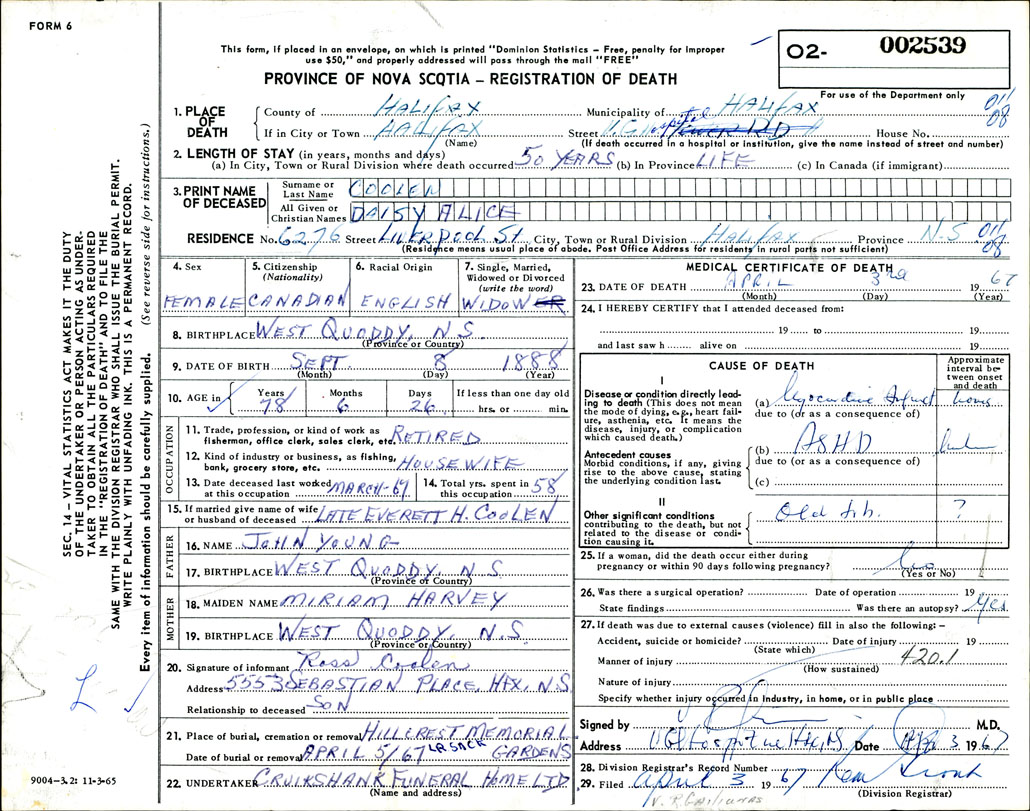 FORM 6
This form, if placed in an envelope, on which is printed "Dominion Statistics – Free, penalty for improper
use $50," and properly addressed will pass through the mail "FREE"
O2- 002539
PROVINCE OF NOVA SCOTIA – REGISTRATION OF DEATH
For use of the Department only
1. PLACE OF DEATH
County of HALIFAX Municipality of HALIFAX 011 08
If in City or Town HALIFAX Street V.G. Hospital House No.
(Name) (If death occurred in a hospital or institution, give the name instead of street and number)
2. LENGTH OF STAY (in years, months and days)
(a) In City, Town or Rural Division where death occurred 50 YEARS (b) In Province LIFE (c) In Canada (if immigrant)
3. PRINT NAME OF DECEASED
Surname or Last Name COOLEN
All Given or Christian Names DAISY ALICE
RESIDENCE No. 6276 Street LIVERPOOL ST City, Town or Rural Division HALIFAX Province N-S 011 08
(Residence means usual place of abode. Post Office Address for residents in rural parts not sufficient)
4. Sex FEMALE
5. Citizenship (Nationality) CANADIAN
6. Racial Origin ENGLISH
7. Single, Married, Widowed or Divorced (write the word) WIDOW
8. BIRTHPLACE WEST QUODDY, N.S.
(Province or Country)
9. DATE OF BIRTH SEPT 8 1888
(Month) (Day) (Year)
10. AGE in Years 78 Months 6 Days 26 If less than one day old hrs. or min.
OCCUPATION
11. Trade, profession, or kind of work as
fisherman, office clerk, sales clerk, etc. RETIRED
12. Kind of industry or business, as fishing,
bank, grocery store, etc. HOUSEWIFE
13. Date deceased last worked at this occupation MARCH-67
14. Total yrs. spent in this occupation 58
15. If married give name of wife
or husband of deceased LATE EVERETT H. COOLEN
FATHER
16. NAME JOHN YOUNG
17. BIRTHPLACE WEST QUODDY, N.S.
(Province or Country)
MOTHER
18. MAIDEN NAME MIRIAM HARVEY
19. BIRTHPLACE WEST QUODDY, N.S.
(Province or Country)
20. Signature of informant Ross Coolen
Address 5553 SEBASTIAN PLACE, HFX, N.S
Relationship to deceased SON
21. Place of burial, cremation or removal HILLCREST MEMORIAL GARDENS
Date of burial or removal APRIL 5/67 LR. SACK
22. UNDERTAKER CRUIKSHANK FUNERAL HOME LTD
(Name and address)
MEDICAL CERTIFICATE OF DEATH
23. DATE OF DEATH APRIL 3rd 1967
(Month) (Day) (Year)
24. I HEREBY CERTIFY that I attended deceased from:
19 to 19
and last saw h alive on 19
CAUSE OF DEATH
Approximate interval between onset and death
I
Disease or condition directly leading to death (This does not mean the mode of dying, e.g., heart failure, asthenia, etc. It means the disease, injury, or complication which caused death.)
(a) Myocardial Infarct hours
due to (or as a consequence of)
Antecedent causes
Morbid conditions, if any, giving rise to the above cause, stating the underlying condition last.
(b) ASHD
due to (or as a consequence of)
(c)
II
Other significant conditions
contributing to the death, but not related to the disease or condition causing it.
Old ?
25. If a woman, did the death occur either during
pregnancy or within 90 days following pregnancy?
(Yes or No)
26. Was there a surgical operation? Date of operation 19
State findings Was there an autopsy? Yes
27. If death was due to external causes (violence) fill in also the following: –
Accident, suicide or homicide? Date of injury 19
(State which)
Manner of injury 420.1
(How sustained)
Nature of injury
Specify whether injury occurred in industry, in home, or in public place
Signed by M.D.
Address Date 3 1967
28. Division Registrar's Record Number
29. Filed April 3 1967
(Division Registrar)
SEC. 14 – VITAL STATISTICS ACT MAKES IT THE DUTY
OF THE UNDERTAKER OR PERSON ACTING AS UNDERTAKER TO OBTAIN ALL THE PARTICULARS REQUIRED
IN THE "REGISTRATION OF DEATH" AND TO FILE THE
SAME WITH THE DIVISION REGISTRAR WHO SHALL ISSUE THE BURIAL PERMIT.
WRITE PLAINLY WITH UNFADING INK. THIS IS A PERMANENT RECORD.
Every item of information should be carefully supplied. (See reverse side for instructions.)
L
9004-3.2: 11-3-65